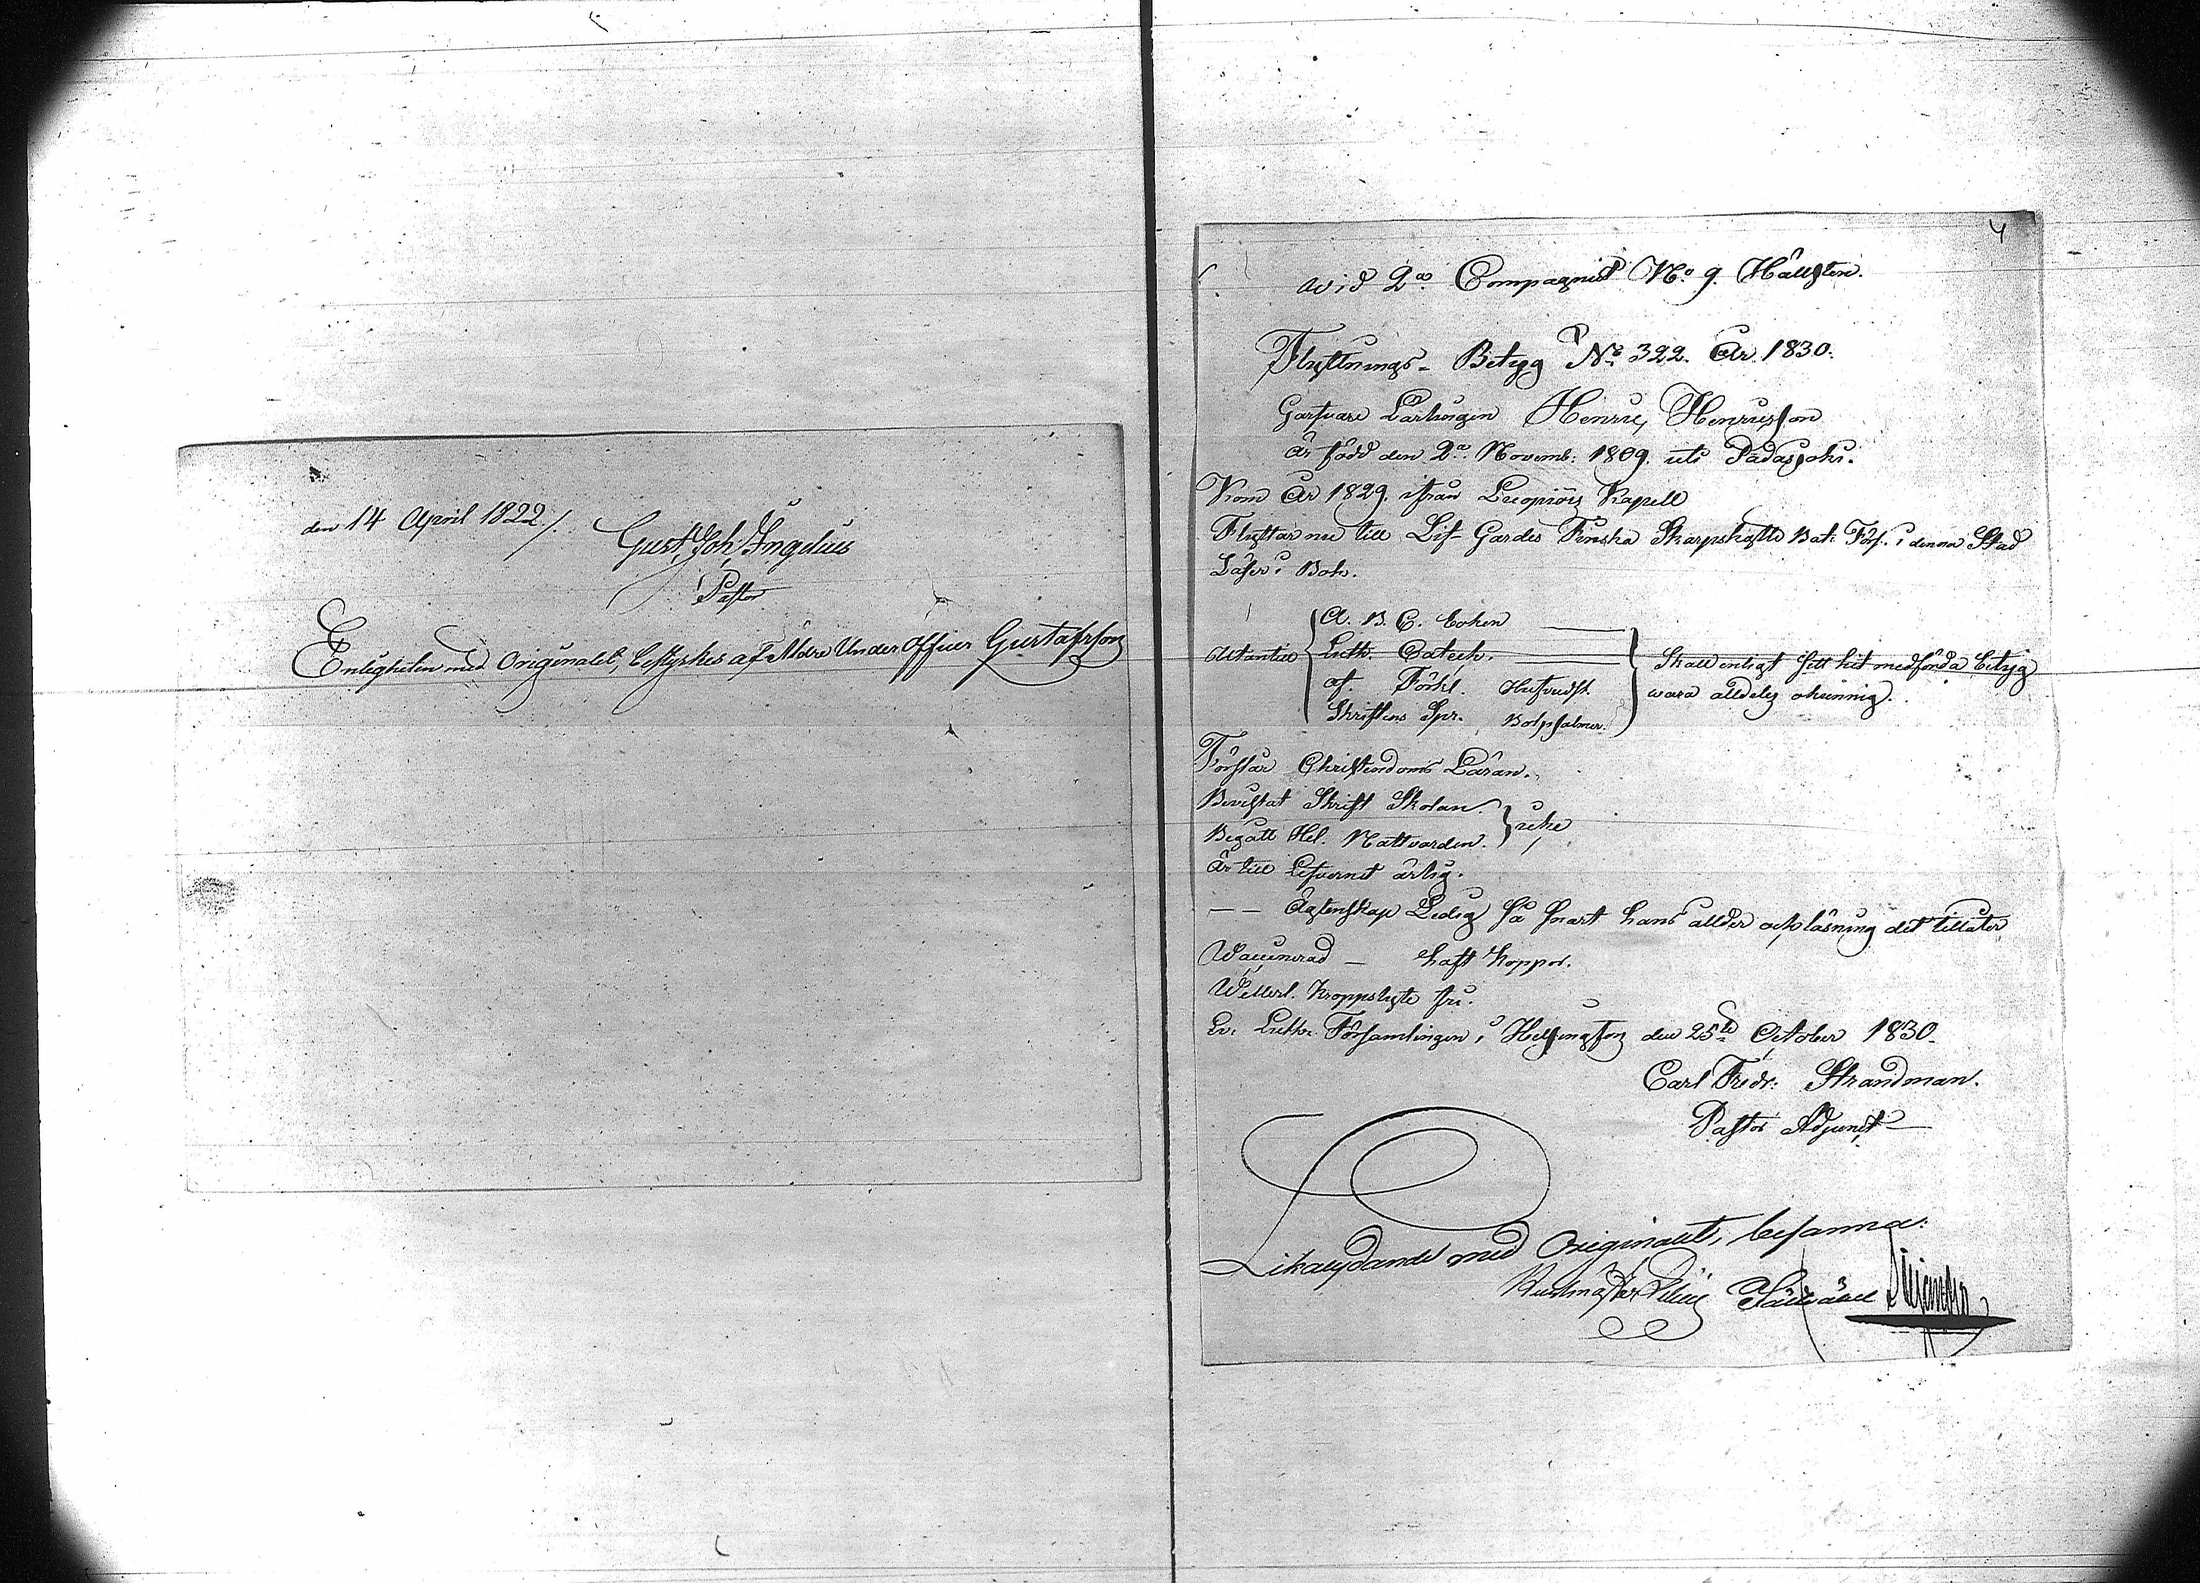 den 14 April 1822 /.
Gust. Joh. Ingelius
Pastor
Enligheten med Originalet, bestyrkes af Äldre Under Officer Gustafsson
4
vid 2a Compagniet No. 9. Hällsten.
Flyttnings-Betyg No. 322. År 1830.
Garfvare Lärlingen Henric Henricsson
Är född den 2a Novemb: 1809. uti Padasjoki.
Kom År 1829. ifrån Kapell
Flyttar nu till Lif Gardes Finska Skarpskytte Bat: Förs. i denna Stad
Läser i Bok.
Utantill
A. B. C. Boken
Luth. Catech.
af. Förkl. Hufvudst.
Skriftens Spr. Botpsalmer.
Skall enligt sitt hit medförda betyg
vara alldeles okunnig.
Förstår Christendoms Läran.
Bevistat Skrift Skolan.
Begått Hel. Nattvarden. icke
Är till Lefvernet ärlig.
— — Ägtenskap Ledig så snart hans ålder och läsning det tillåter
Vaccinerad — haft koppor.
Weterl. kroppslyte fri.
Ev. Luth. Församlingen i Helsingfors den 25te October 1830.
Carl Fredr. Strandman.
Pastor Adjunct
Likalydande med Originalet, befanna: